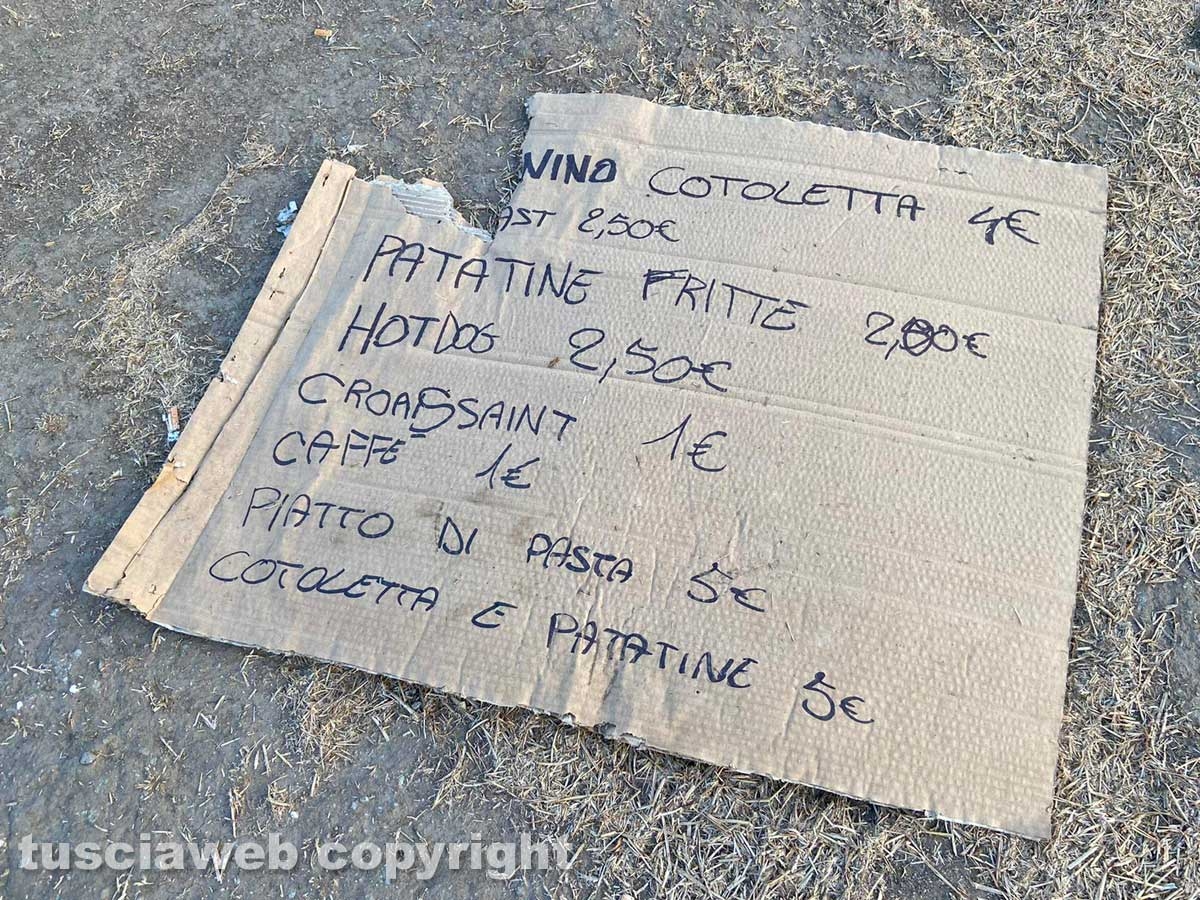 NINO COTOLETTA 4€
AST 2,50€
PATATINE FRITTE 2,00€
HOTDOG 2,50€
CROAISSAINT 1€
CAFFÈ 1€
PIATTO DI PASTA 5€
COTOLETTA E PATATINE 5€
tusciaweb copyright